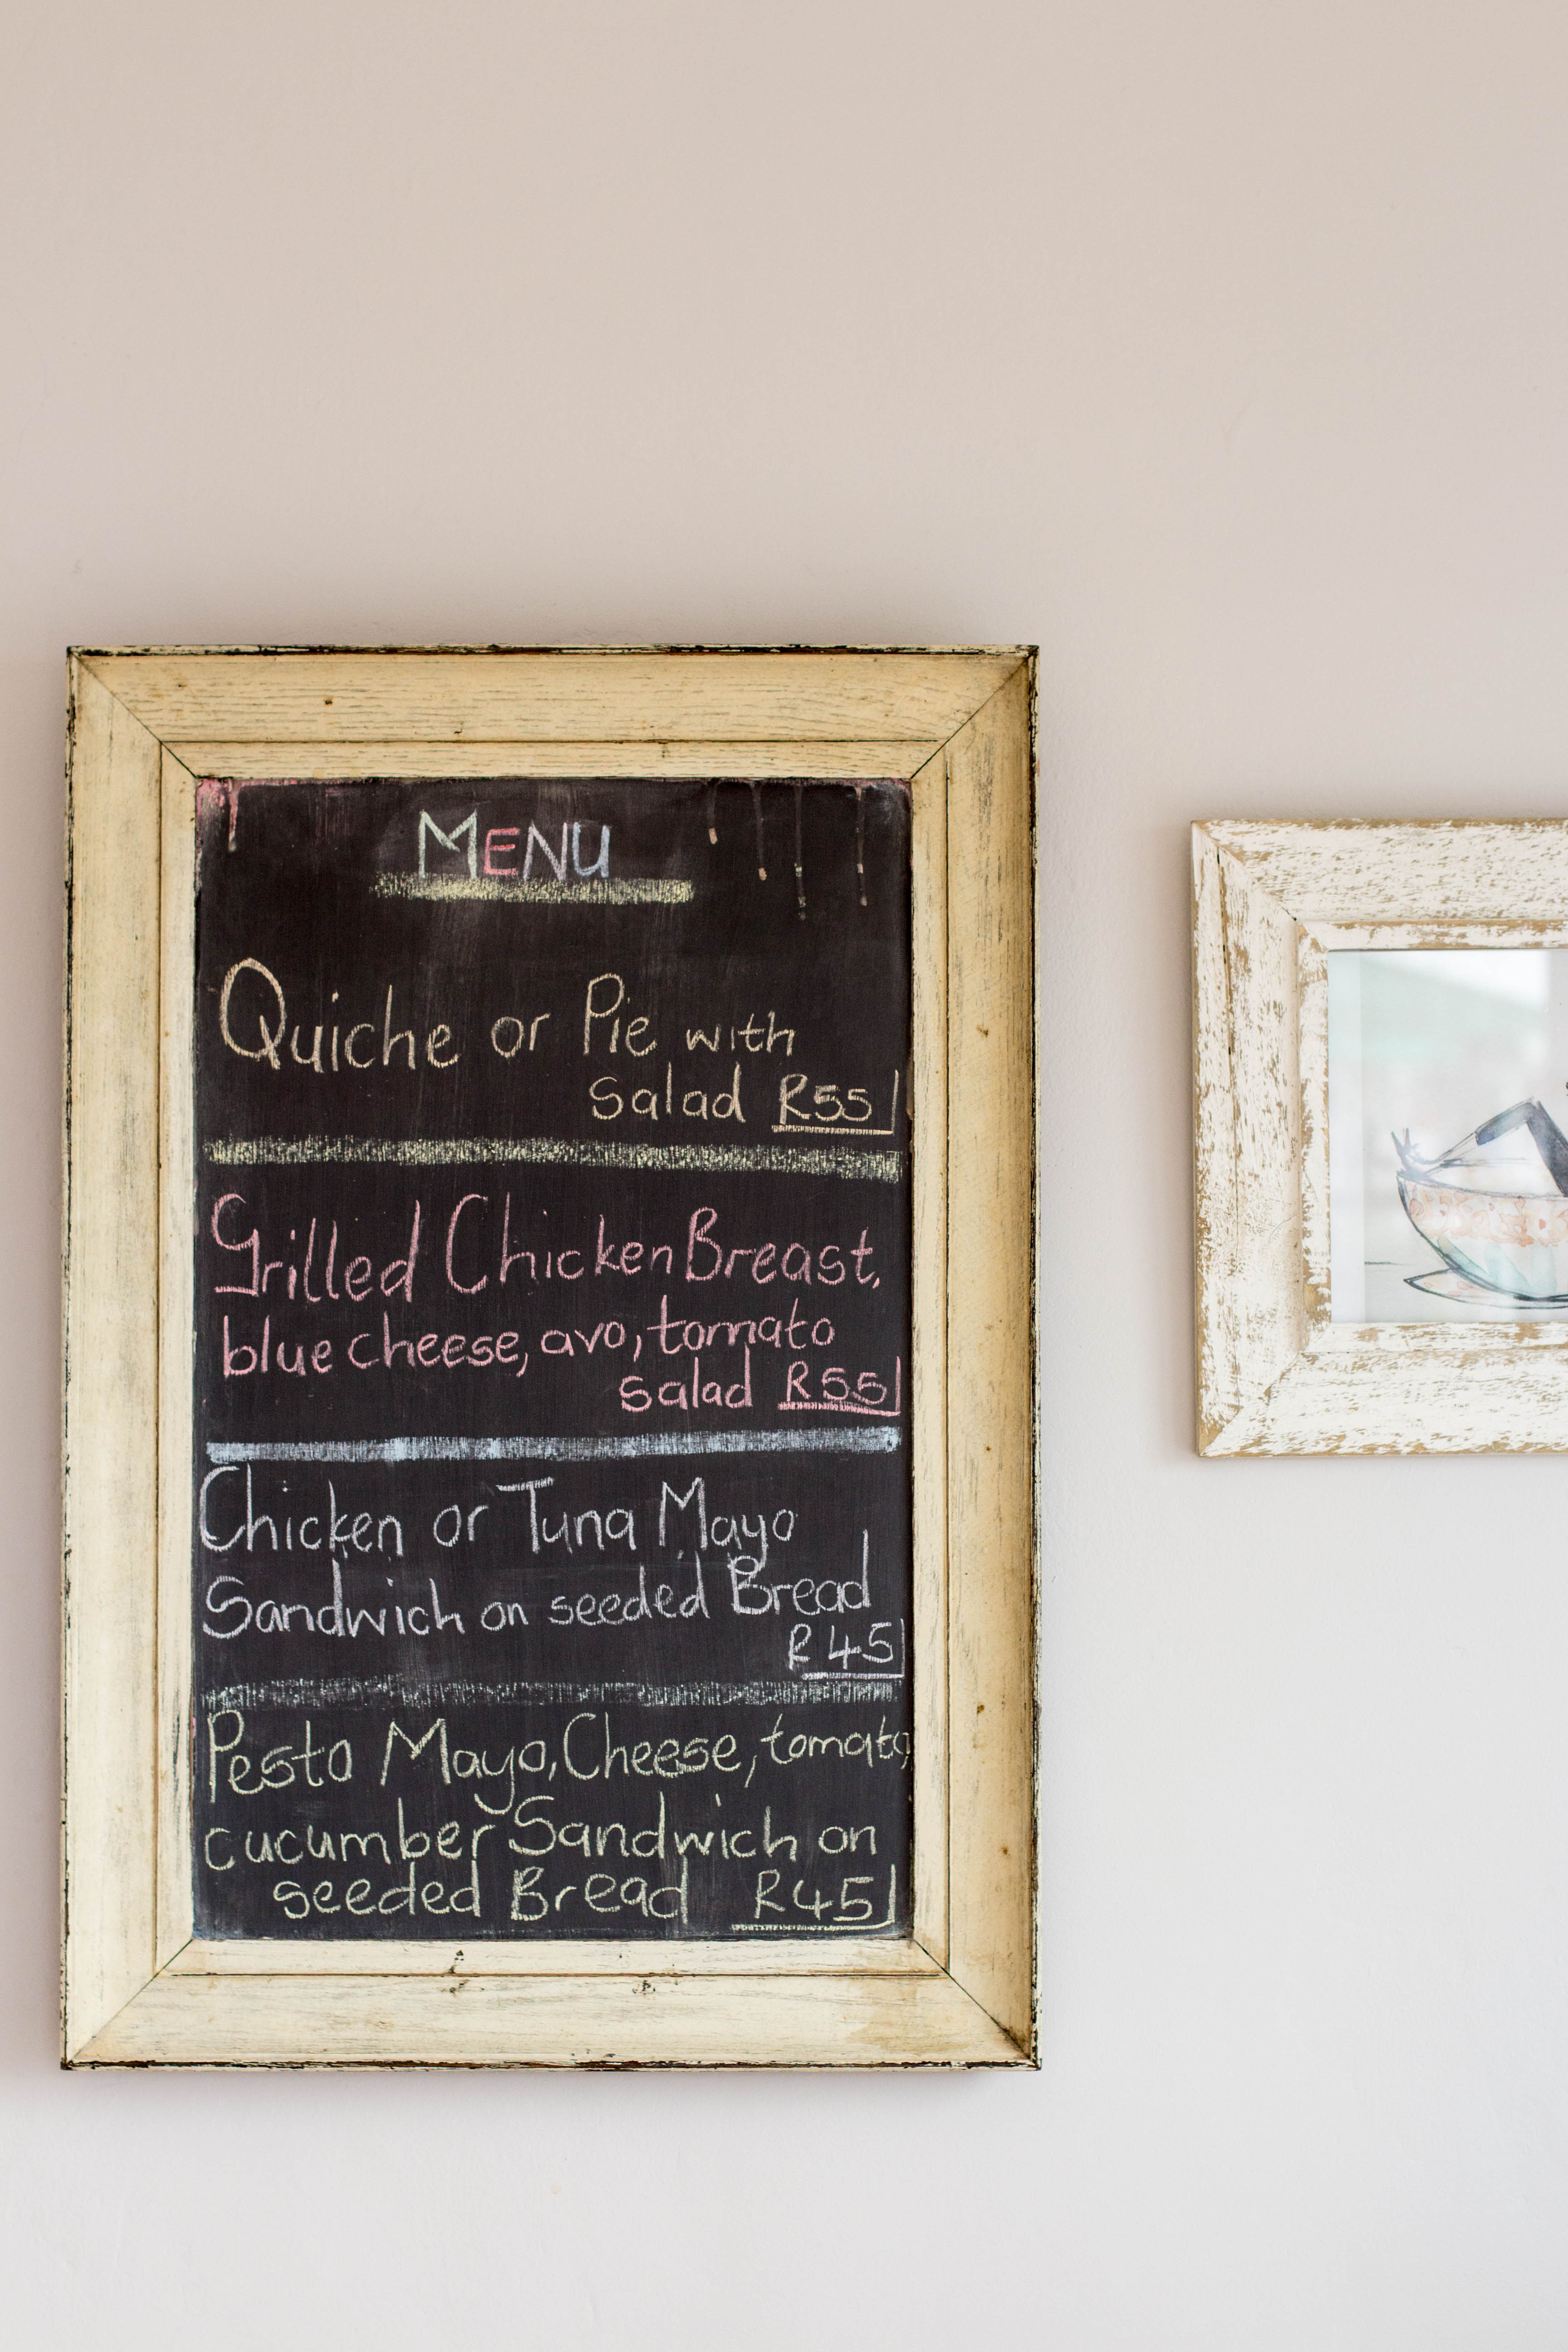 MENU
Quiche or Pie with
Salad R55
Grilled Chicken Breast,
blue cheese, avo, tomato
salad R55
Chicken or Tuna Mayo
Sandwich on seeded Bread
R45
Pesto Mayo, Cheese, tomato,
cucumber Sandwich on
seeded Bread R45